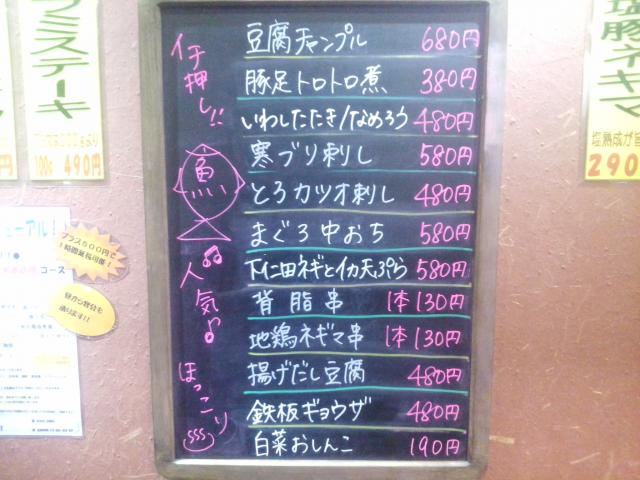 イチ押し!!
豆腐チャンプル 680円
豚足トロトロ煮 380円
いわしたたき/なめろう 480円
魚
寒ブリ刺し 580円
とろカツオ刺し 480円
まぐろ中おち 580円
人気
下仁田ネギとイカ天ぷら 580円
背脂串 1本130円
地鶏ネギマ串 1本130円
ほっこり
揚げだし豆腐 480円
鉄板ギョウザ 480円
白菜おしんこ 190円
ミステーキ
100g 490円
プラス500円で
1時間延長可能!
コース
塩豚ネギマ
塩熟成が
290